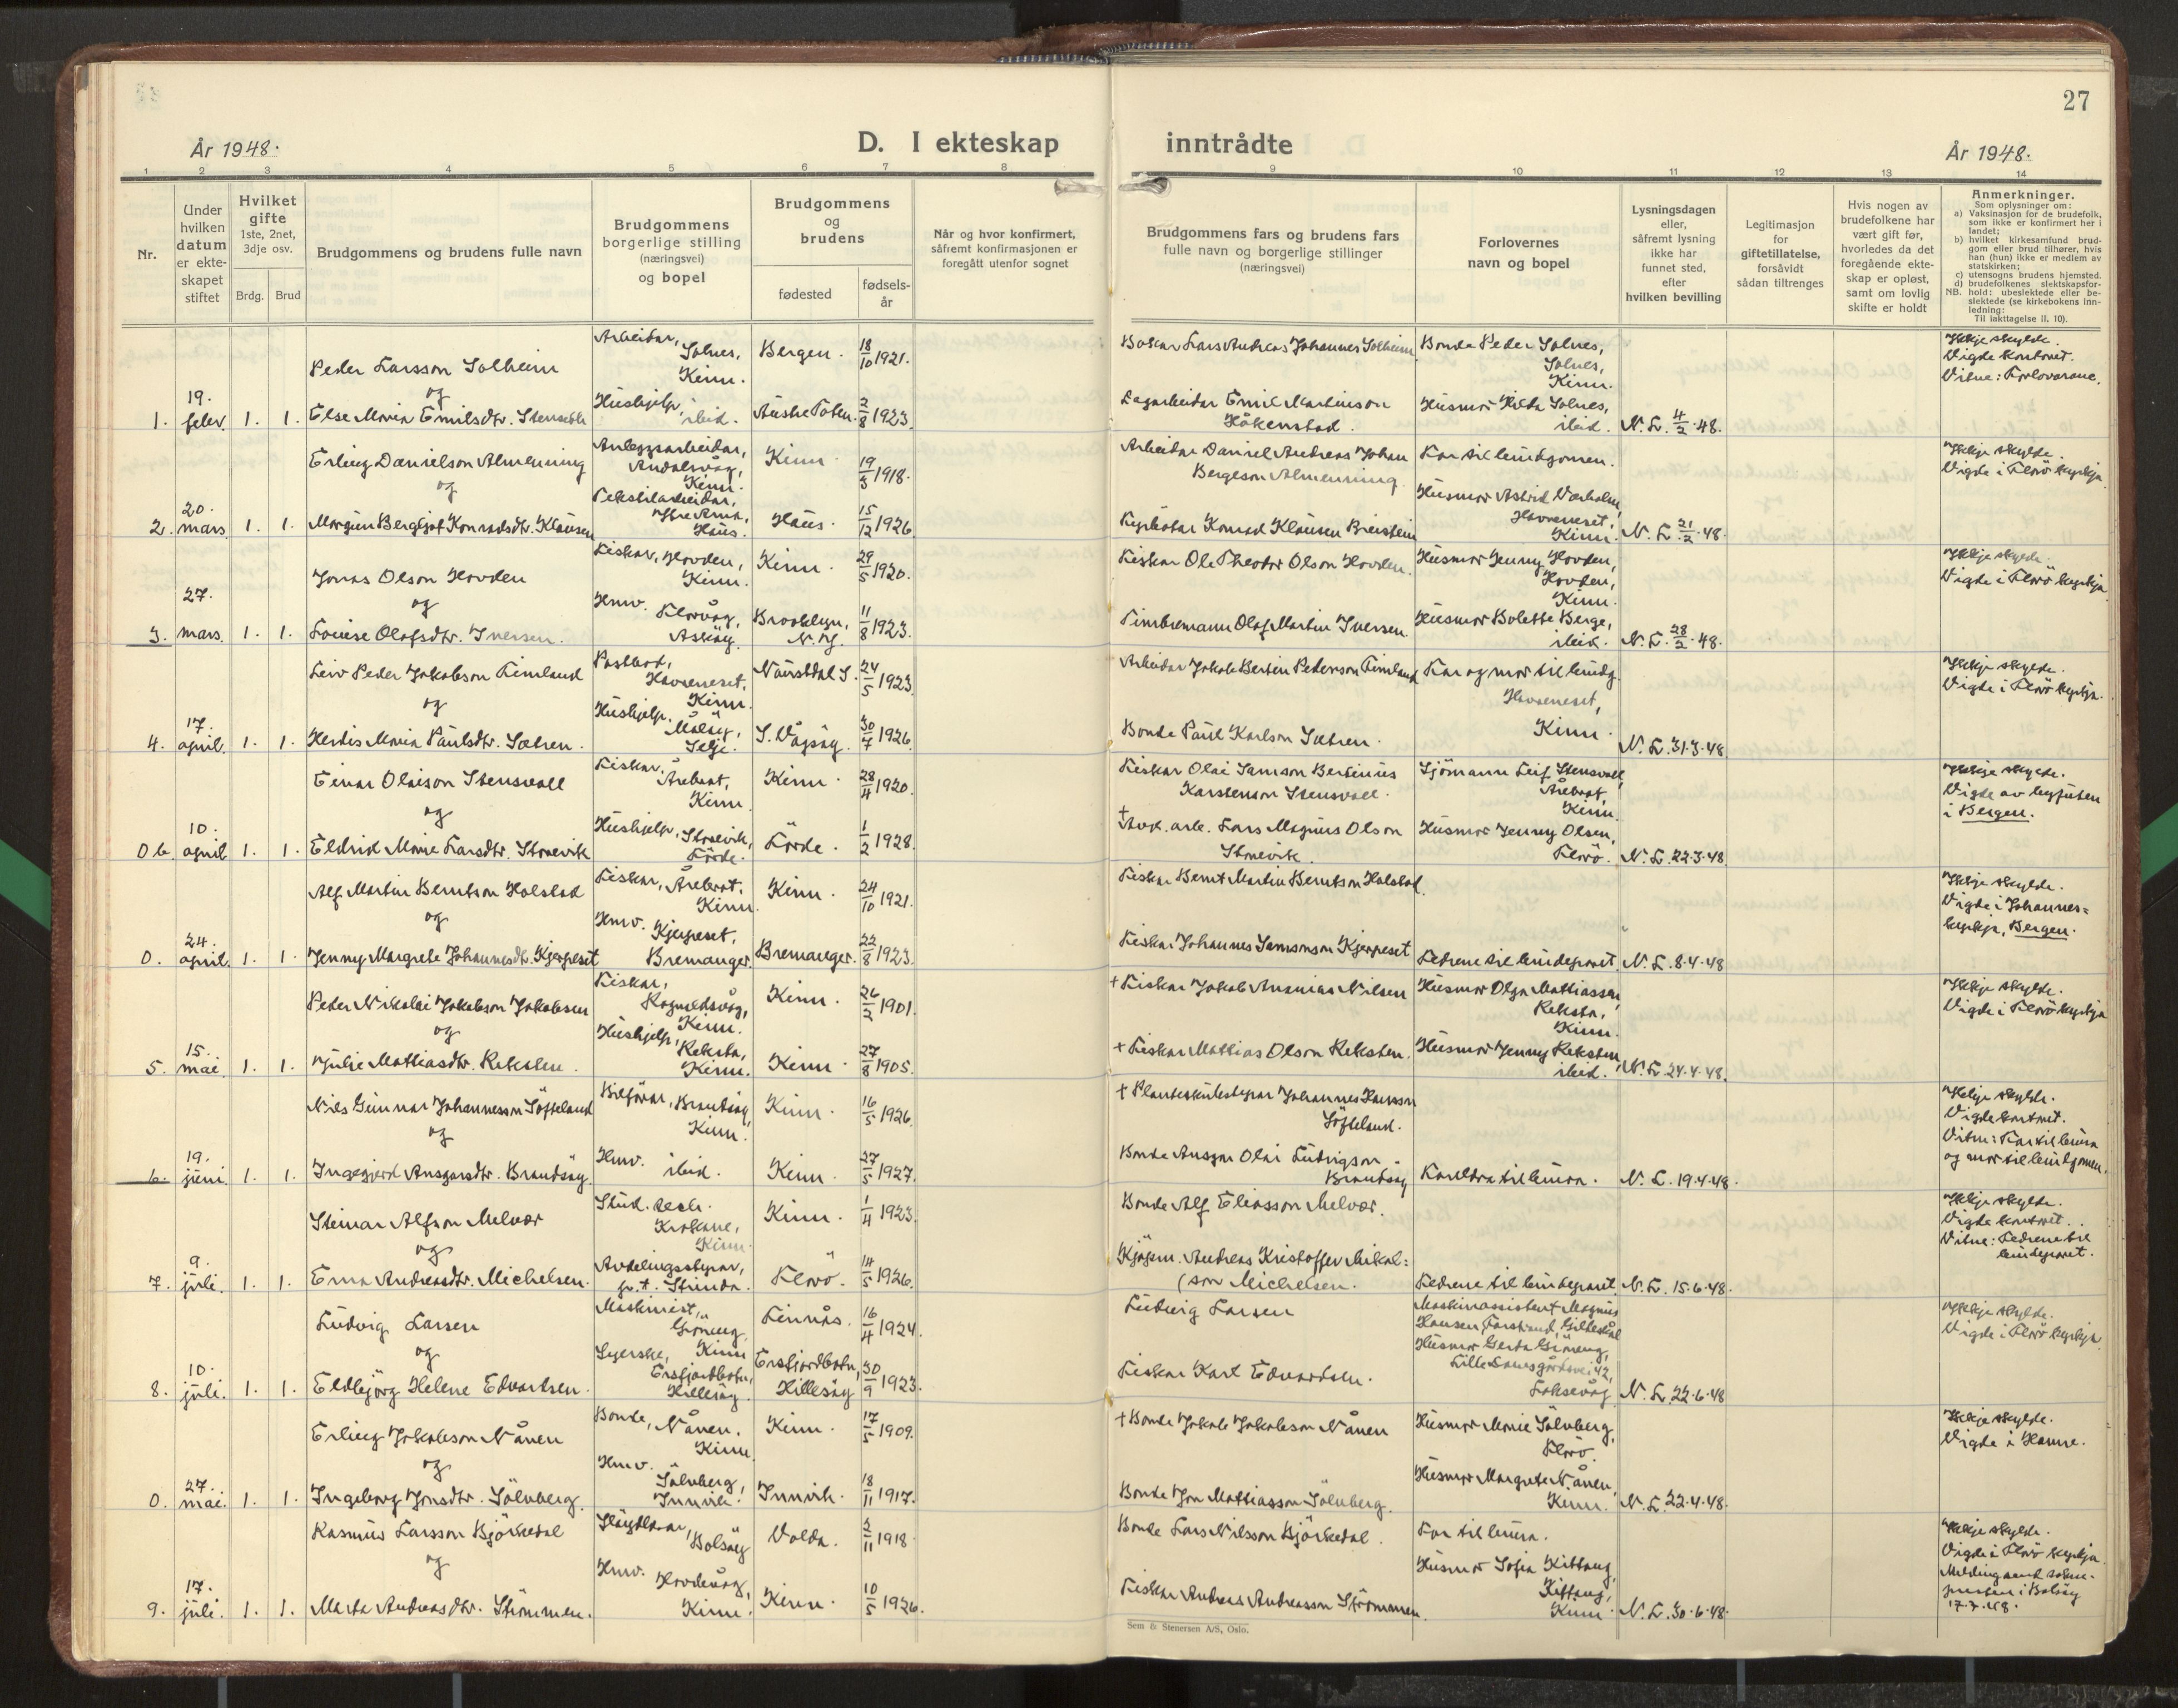 27
År 1948.
D. I ekteskap inntrådte
År 1948.
1 2 3 4 5 6 7 8 9 10 11 12 13 14
Nr.
Under hvilken datum er ekte-skapet stiftet
Hvilket gifte 1ste, 2net, 3dje osv.
Brdg. Brud
Brudgommens og brudens fulle navn
Brudgommens borgerlige stilling (næringsvei) og bopel
Brudgommens og brudens
fødested
fødsels-år
Når og hvor konfirmert, såfremt konfirmasjonen er foregått utenfor sognet
Brudgommens fars og brudens fars fulle navn og borgerlige stillinger (næringsvei)
Forlovernes navn og bopel
Lysningsdagen eller, såfremt lysning ikke har funnet sted, efter hvilken bevilling
Legitimasjon for giftetillatelse, forsåvidt sådan tiltrenges
Hvis nogen av brudefolkene har vært gift før, hvorledes da det foregående ekte-skap er opløst, samt om lovlig skifte er holdt
Anmerkninger.
Som oplysninger om:
a) Vaksinasjon for de brudefolk, som ikke er konfirmert her i landet;
b) hvilket kirkesamfund brud-gom eller brud tilhører, hvis han (hun) ikke er medlem av statskirken;
c) utensogns brudens hjemsted.
d) brudefolkenes slektskapsfor-hold: ubeslektede eller be-slektede (se kirkebokens inn-ledning:
NB. Til iakttagelse II, 10).
1. 19. febr. 1. 1.
Peder Larsson Solheim
og
Else Maria Emilsdtr.
Arbeidar, Solnes, Kinn. Bergen. 18/10 1921.
Hushjelp, ibid. 2/8 1923.
Baker Lars Andreas Johannes Solheim
Bonde Peder Solnes, Solnes, Kinn.
Lagarbeidar Emil Martinson Håkenstad.
Husmor Hilda Solnes, ibid. N. L. 4/2.48.
Ikkje skylde. Vigde kontoret. Vitne: Forlovarane.
2. 20. mars 1. 1.
Erling Danielson Almenning
og
Konradsdtr. Klausen
Anleggsarbeidar, Kinn. Kinn 19/3 1918.
Tekstilarbeidar, Ytre Arna, Haus. Haus. 15/12 1926
Arbeidar Daniel Andreas Johan Bergeson Almenning
Far til brudgomen.
Konrad Klausen
Husmor Astrid Havreneset, Kinn. N. L. 21/2.48.
Ikkje skylde. Vigde i Florö kyrkja.
3. 27. mars. 1. 1.
Jonas Olson Hovden
og
Louise Olafsdtr. Iversen.
Fiskar, Hovden, Kinn. Kinn. 29/5 1920.
Hmv. Florvåg, Askøy. Brooklyn, N.Y. 11/8 1923.
Fiskar Ole Theodor Olson Hovden.
Husmor Jenny Hovden, Hovden, Kinn.
Timbremann Olaf Martin Iversen.
Husmor Bolette Berge, ibid. N. L. 28/2.48.
Ikkje skylde. Vigde i Florö kyrkja
4. 17. april. 1. 1.
Leiv Peder Jakobson Timland
og
Herdis Maria Paulsdtr. Sætren.
Postbod, Havreneset, Kinn. Naustdal S. 24/5 1923.
Hushjelp, Måløy, Selje. S. Vågsøy. 30/7 1926.
Arbeidar Jakob Bertin Pederson Timland
Far og mor til brudg. Havreneset, Kinn.
Bonde Paul Karlson Sætren.
N. L. 31.3.48.
Ikkje skylde. Vigde i Florö kyrkja.
0b. 10. april 1. 1.
Einar Olaison Stensvall
og
Eldrid Marie Larsdtr. Storevik
Fiskar, Årebrot, Kinn. Kinn. 28/4 1920.
Hushjelp, Storevik, Förde. Förde. 1/2 1928.
Fiskar Olai Samson Bertinius Karstenson Stensvall.
Sjömann Leif Stensvall, Årebrot, Kinn.
+ Lars Magnus Olson Storevik
Husmor Jenny Olsen, Florö. N. L. 22.3.48.
Ikkje skylde. Vigde av byfuten i Bergen.
0. 24. april. 1. 1.
Alf Martin Berntson Holstad
og
Jenny Margrete Johannesdtr. Kjerpeset
Fiskar, Årebrot, Kinn. Kinn. 24/10 1921.
Hmv. Kjerpeset, Bremanger. Bremanger. 22/8 1923.
Fiskar Bernt Martin Berntson Holstad.
Fiskar Johannes Samsonson Kjerpeset
Fedrene til brudeparet. N. L. 8.4.48
Ikkje skylde. Vigde i Johannes=kyrkja, Bergen.
5. 15. mai. 1. 1.
Peder Nikolai Jakobson Jakobsen
og
Julie Mattiasdtr. Reksten.
Fiskar, Rognaldsvåg, Kinn. Kinn. 26/2 1901.
Hushjelp, Reksta, Kinn. Kinn. 27/8 1905.
+ Fiskar Jakob Ananias Nilsen
Husmor Olga Mattiassen, Reksta, Kinn.
+ Fiskar Mattias Olson Reksten.
Husmor Jenny Reksten, ibid. N. L. 24.4.48.
Ikkje skylde. Vigde i Florö kyrkja
6. 19. juni. 1. 1.
Nils Gunnar Johannesson Söfteland
og
Ingegjerd Ansgarsdtr. Brandsøy.
Bilförar, Brandsøy, Kinn. Kinn. 16/5 1926.
Hmv. ibid. Kinn. 27/5 1927.
+ Planteskulestyrar Johannes Hansson Söfteland.
Bonde Ansgar Olai Ludvigson Brandsøy
Foreldra til brura. N. L. 19.4.48.
Ikkje skylde. Vigde kontoret. Vitne: Far til brura og mor til brudgomen.
7. 9. juli. 1. 1.
Steinar Alfson Melvær
og
Erna Andreasdtr. Michelsen.
Stud. tech. Krokane, Kinn. Kinn. 1/4 1923.
Avdelingsstyrar, p.t. Strinda. Florö. 14/5 1926.
Bonde Alf Eliasson Melvær.
Kjøpm. Andreas Kristoffer Mikal=son Michelsen.
Fedrene til brudeparet. N. L. 15.6.48.
Ikkje skylde. Vigde kontoret. Vitne: Fedrene til brudeparet.
8. 10. juli. 1. 1.
Ludvig Larsen
og
Eldbjørg Helene Edvardsen.
Maskinist, Kinn Linnås. 16/4 1924.
Syerske, Ersfjordbotn, Hillesøy. Ersfjordbotn, Hillesøy 30/9 1923.
Ludvig Larsen
Maskinassistent Magnus Hansen,
Fiskar Karl Edvardsen.
Husmor Gerda Laksevåg N. L. 22.6.48
Ikkje skylde. Vigde i Florö kyrkja.
0. 27. mai. 1. 1.
Erling Jakobson Nånen
og
Ingeborg Jonsdtr. Sölvberg.
Bonde, Nånen, Kinn. Kinn. 17/5 1909.
Hmv. Sölvberg, Innvik. Innvik. 18/11 1917.
+ Bonde Jakob Jakobson Nånen
Husmor Marie Sölvberg, Florö.
Bonde Jon Mattiasson Sölvberg.
Husmor Margrete Nånen, Kinn. N. L. 22.4.48.
Ikkje skylde. Vigde i
9. 17. juli. 1. 1.
Rasmus Larsson Björkedal
og
Marta Andreasdtr. Strömmen.
Bolsøy Volda. 2/11 1918.
Hmv. Hovdevåg, Kinn. Kinn. 10/5 1926.
Bonde Lars Nilsson Björkedal.
Far til brura.
Fiskar Andreas Andreasson Strömmen.
Husmor Sofia Kittang, Kittang, Kinn. N. L. 30.6.48.
Ikkje skylde. Vigde i Florö kyrkja. Melding sendt sokne-presten i Bolsøy 17.7.48.
Sem & Stenersen A/S, Oslo.